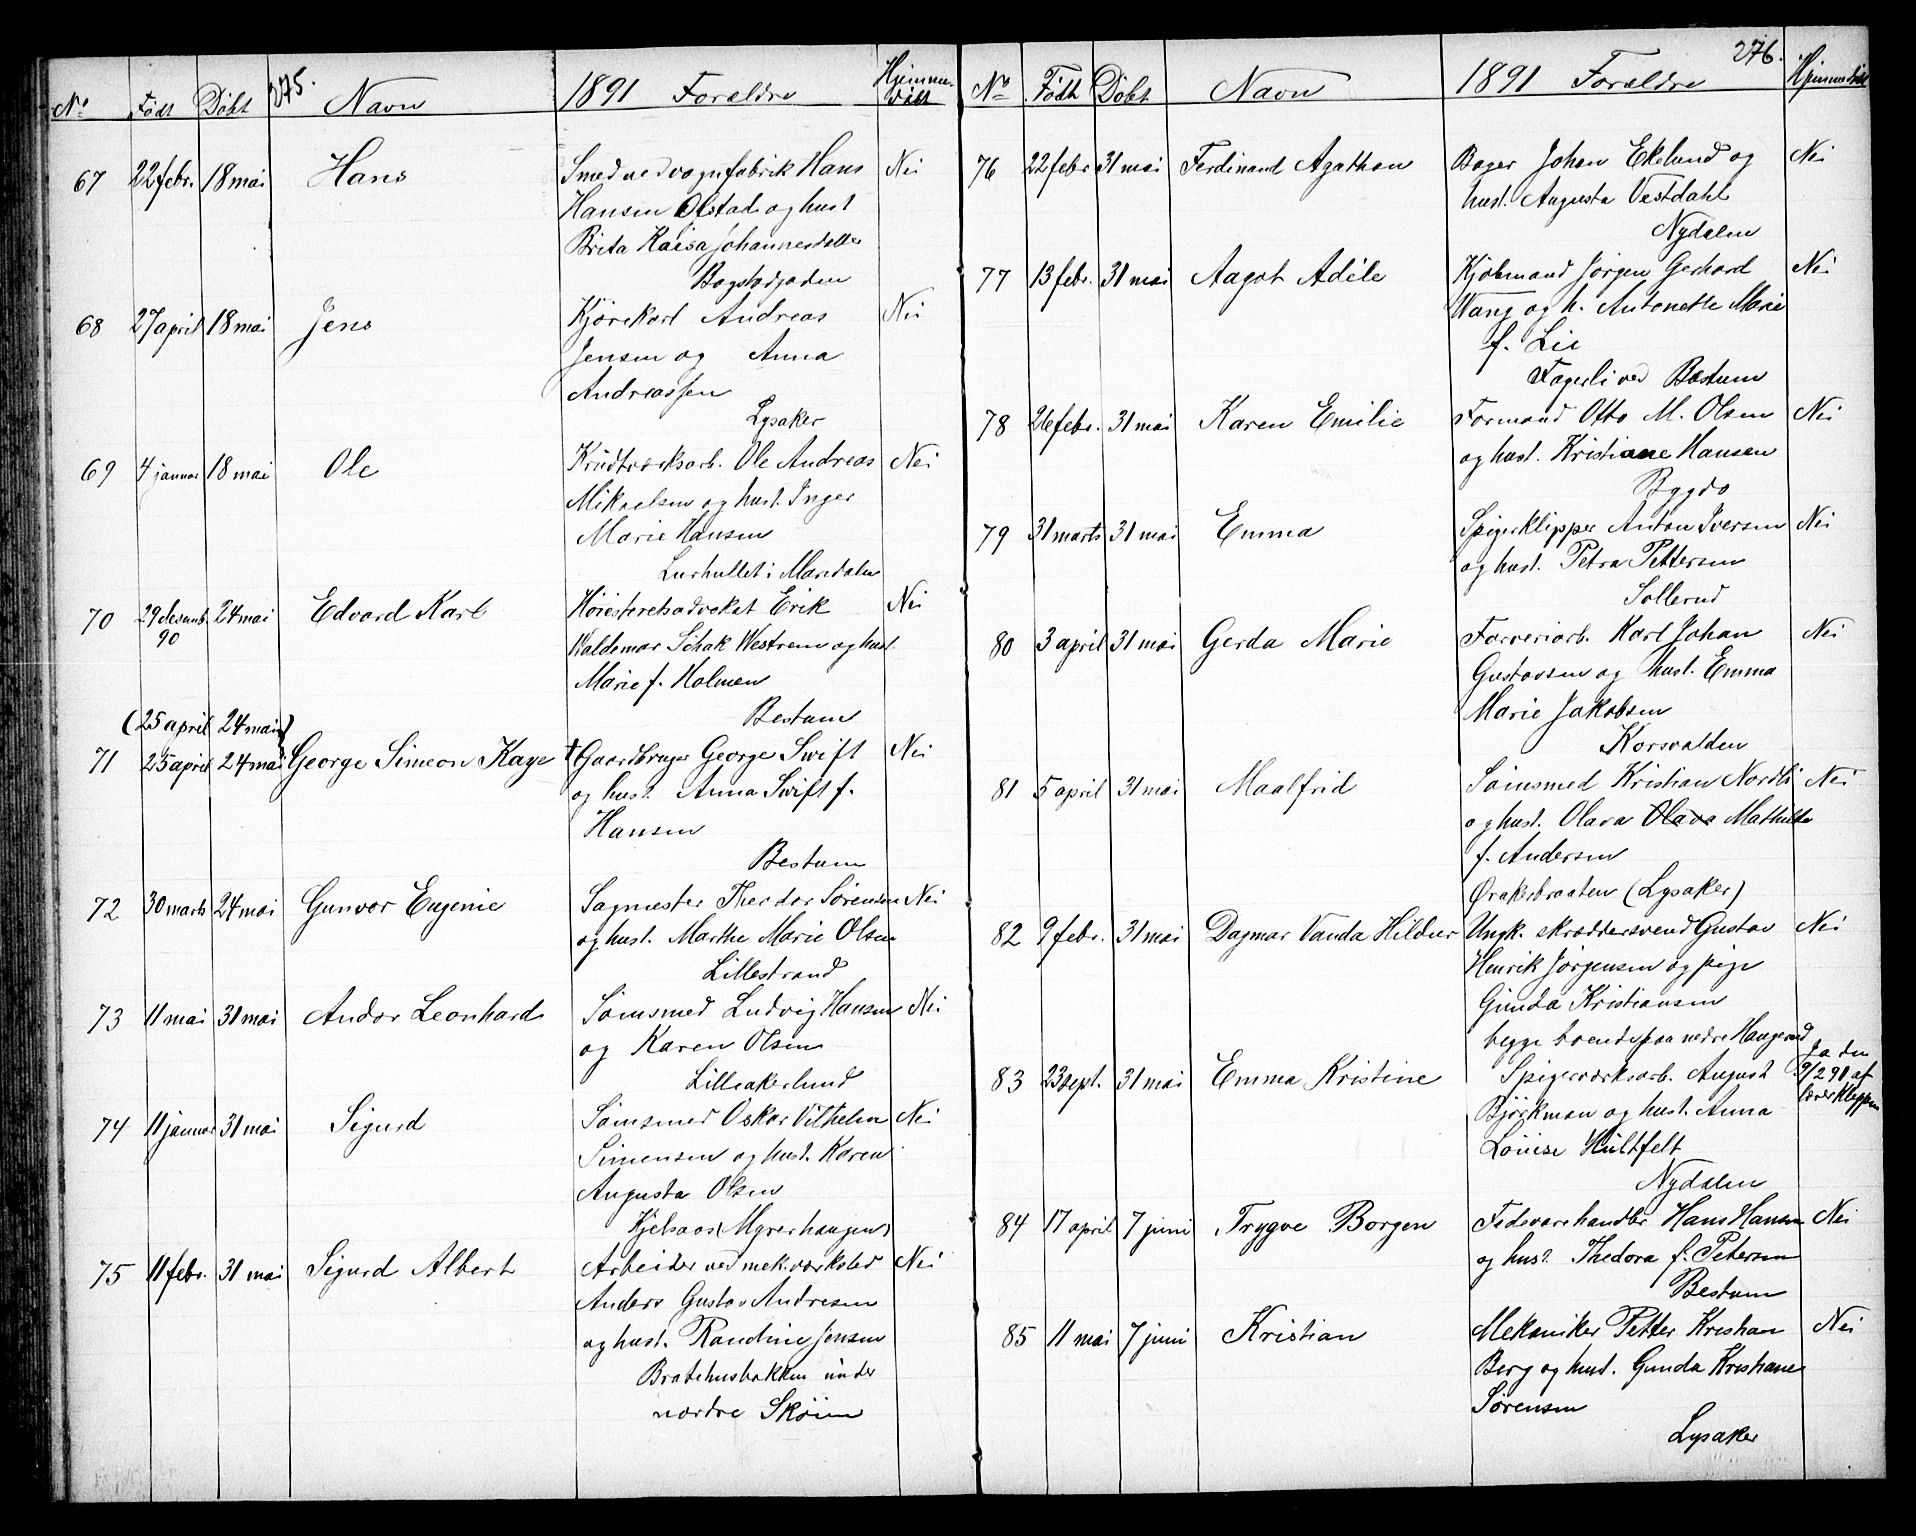 275.
No Født Døbt Navn 1891 Forældre Hjemmedøbt
67 22 febr. 18 mai Hans Smed ved vognfabrik Hans Nei
Hansen Olstad og hust
Brita Kaisa Johannesdatter
Bogstadgaden
68 27 april 18 mai Jens Kjørekarl Andreas Nei
Jensen og Anna
Andreassen
Lysaker
69 4 januar 18 mai Ole Krudtværksarb. Ole Andreas Nei
Mikaelsen og hust. Inger
Marie Hansen
Lurhullet i Maridalen
70 29 desemb. 24 mai Edvard Karl Høiesteretsadvokat Erik Nei
90 Waldemar Schak Westrem og hust.
Marie f. Holmen
Bestum
(25 april 24 mai)
71 25 april 24 mai George Simeon Kaye † Gaardbruger George Swift Nei
og hust. Anna Swift f.
Hansen
Bestum
72 30 marts 24 mai Gunvor Eugenie Sagmester Theodor Sørensen Nei
og hust. Marthe Marie Olsen
Lillestrand
73 11 mai 31 mai Andor Leonhard Sømsmed Ludvig Hansen Nei
og Karen Olsen
Lilleakerlund
74 11 januar 31 mai Sigurd Sømsmed Oskar Vilhelm Nei
Simensen og hust. Karen
Augusta Olsen
Kjelsaas (Myrerhaugen)
75 11 febr. 31 mai Sigurd Albert Arbeider ved mek. værksted Nei
Anders Gustav Andresen
og hust. Randine Jensen
Bratehusbakken under
nordre Skøien
276.
No Født Døbt Navn 1891 Forældre Hjemmedøbt
76 22 febr 31 mai Ferdinand Agathon Bager Johan Ekelund og Nei
hust. Augusta Vestdahl
Nydalen
77 13 febr. 31 mai Aagot Adéle Kjøbmand Jørgen Gerhard Nei
Wang og h. Antonette Marie
f. Lie
Fagerli ved Bestum
78 26 febr. 31 mai Karen Emilie Formand Otto M. Olsen Nei
og hust. Kristiane Hansen
Bygdø
79 31 marts 31 mai Emma Spigerklipper Anton Iversen Nei
og hust. Petra Pettersen
Sollerud
80 3 april 31 mai Gerda Marie Farveriarb. Karl Johan Nei
Gustavsen og hust. Emma
Marie Jakobsen
Korsvolden
81 5 april 31 mai Maalfrid Sømsmed Kristian Nordli Nei
og hust. Olava Olava Mathilda
f. Andersen
Ørakerbraaten (Lysaker)
82 9 febr. 31 mai Dagmar Vanda Hildur Ungk. skræddersvend Gustav Nei
Henrik Jørgensen og pige
Gunda Kristiansen
begge boende paa nedre Haugerud
83 23 sept. 31 mai Emma Kristine Spigerværksarb. August Ja den
Bjørkman og hust. Anna 9/2 91 af
Louise Hultfelt lærer Kleppen
Nydalen
84 17 april 7 juni Trygve Borgen Fedevarehandler Hans Hansen Nei
og hust. Thedora f. Petersen
Bestum
85 11 mai 7 juni Kristian Mekaniker Petter Kristian Nei
Berg og hust. Gunda Kristiane
Sørensen
Lysaker